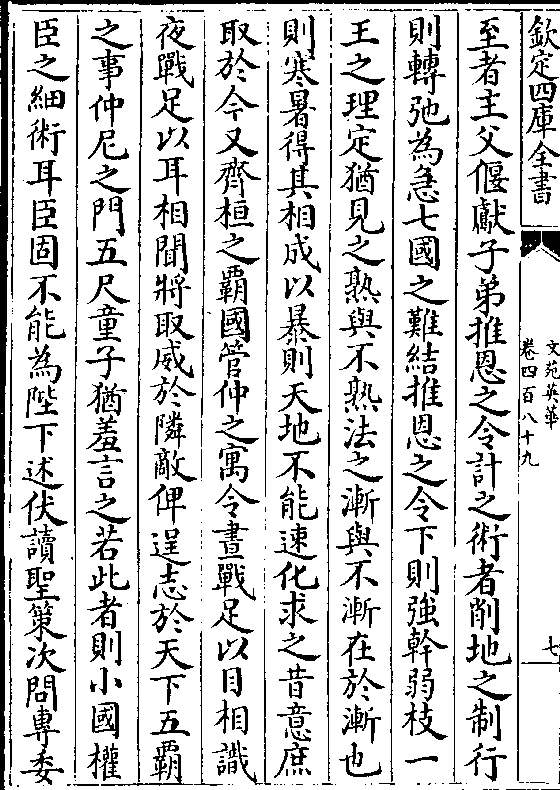 欽定四庫全書
文苑英華
卷四百八十九
七
至者主父偃獻子弟推恩之令計之術者削地之制行
則轉弛為急七國之難結推恩之令下則強幹弱枝一
王之理定猶見之熟與不熟法之漸與不漸在於漸也
則寒暑得其相成以暴則天地不能速化求之昔意庶
取於今又齊桓之霸國管仲之寓令晝戰足以目相識
夜戰足以耳相聞將取威於隣敵俾逞志於天下五霸
之事仲尼之門五尺童子猶羞言之若此者則小國權
臣之細術耳臣固不能為陛下述伏讀聖策次問專委